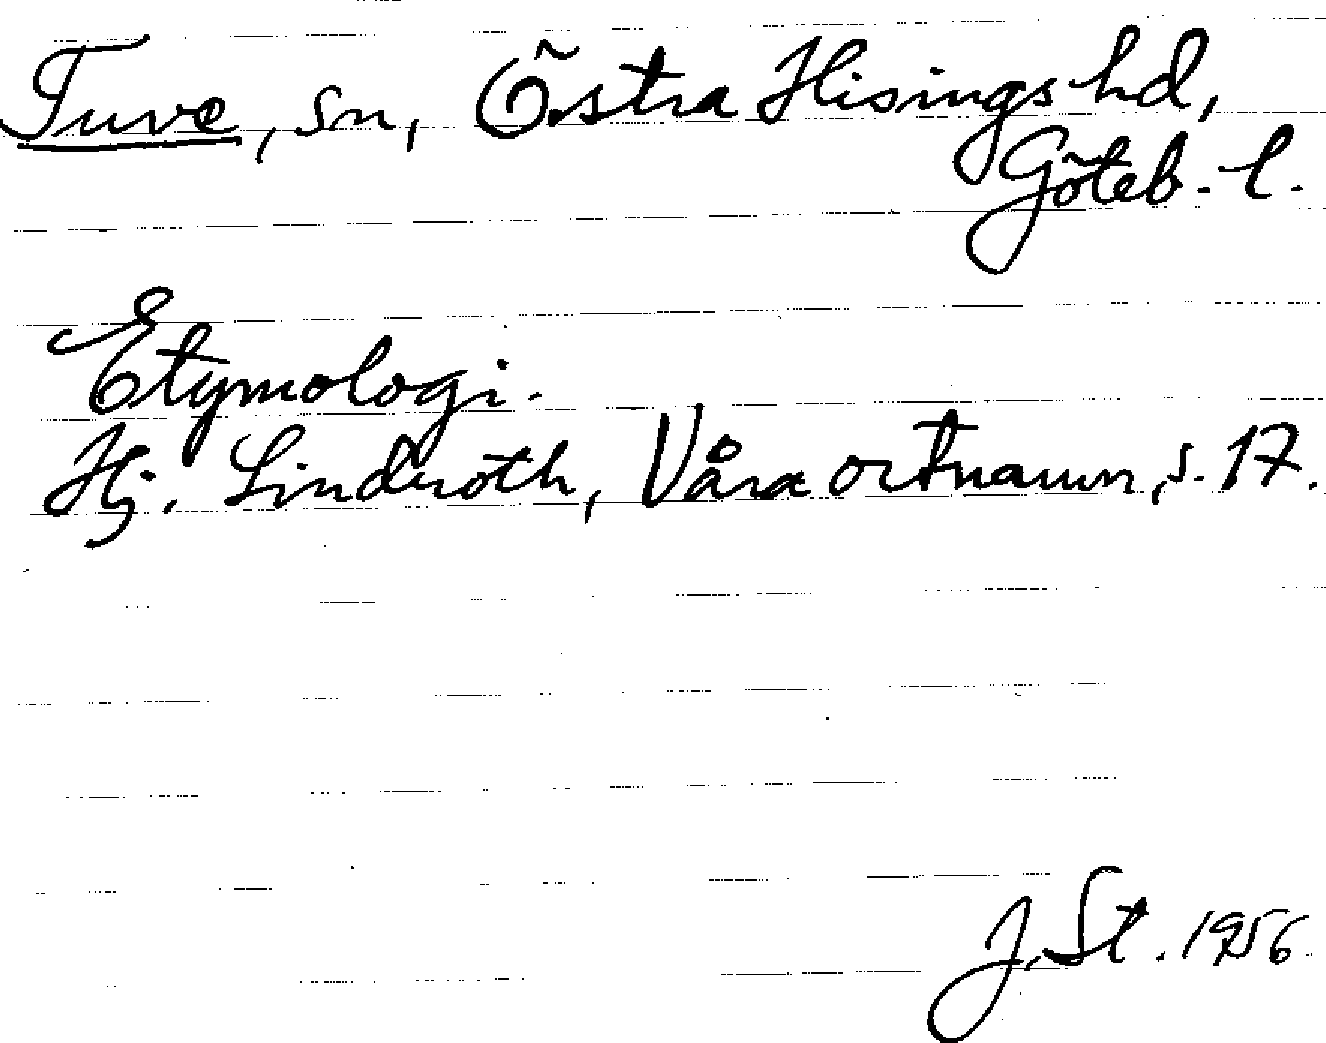 Tuve, sn, Östra Hisings hd,
Göteb. l.
Etymologi.
Hj. Lindroth, Våra ortnamn, s. 17.
J. St. 1956.